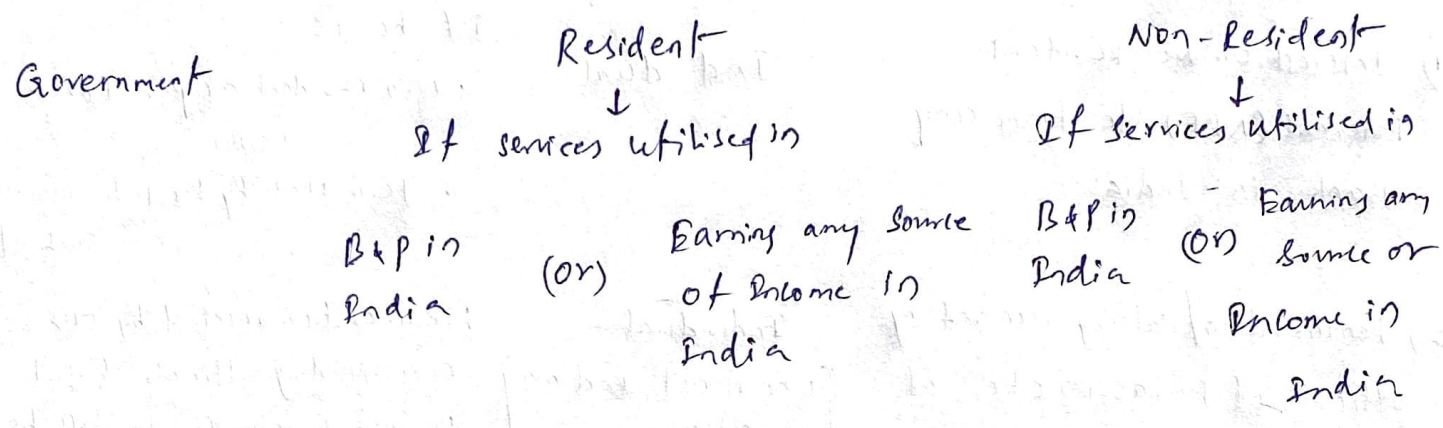 Government
Resident
↓
If services utilised in
B&P in
India
(or)
Earning any source
of Income in
India
Non-Resident
↓
If services utilised in
B&P in
India
(or)
Earning any
source or
Income in
India